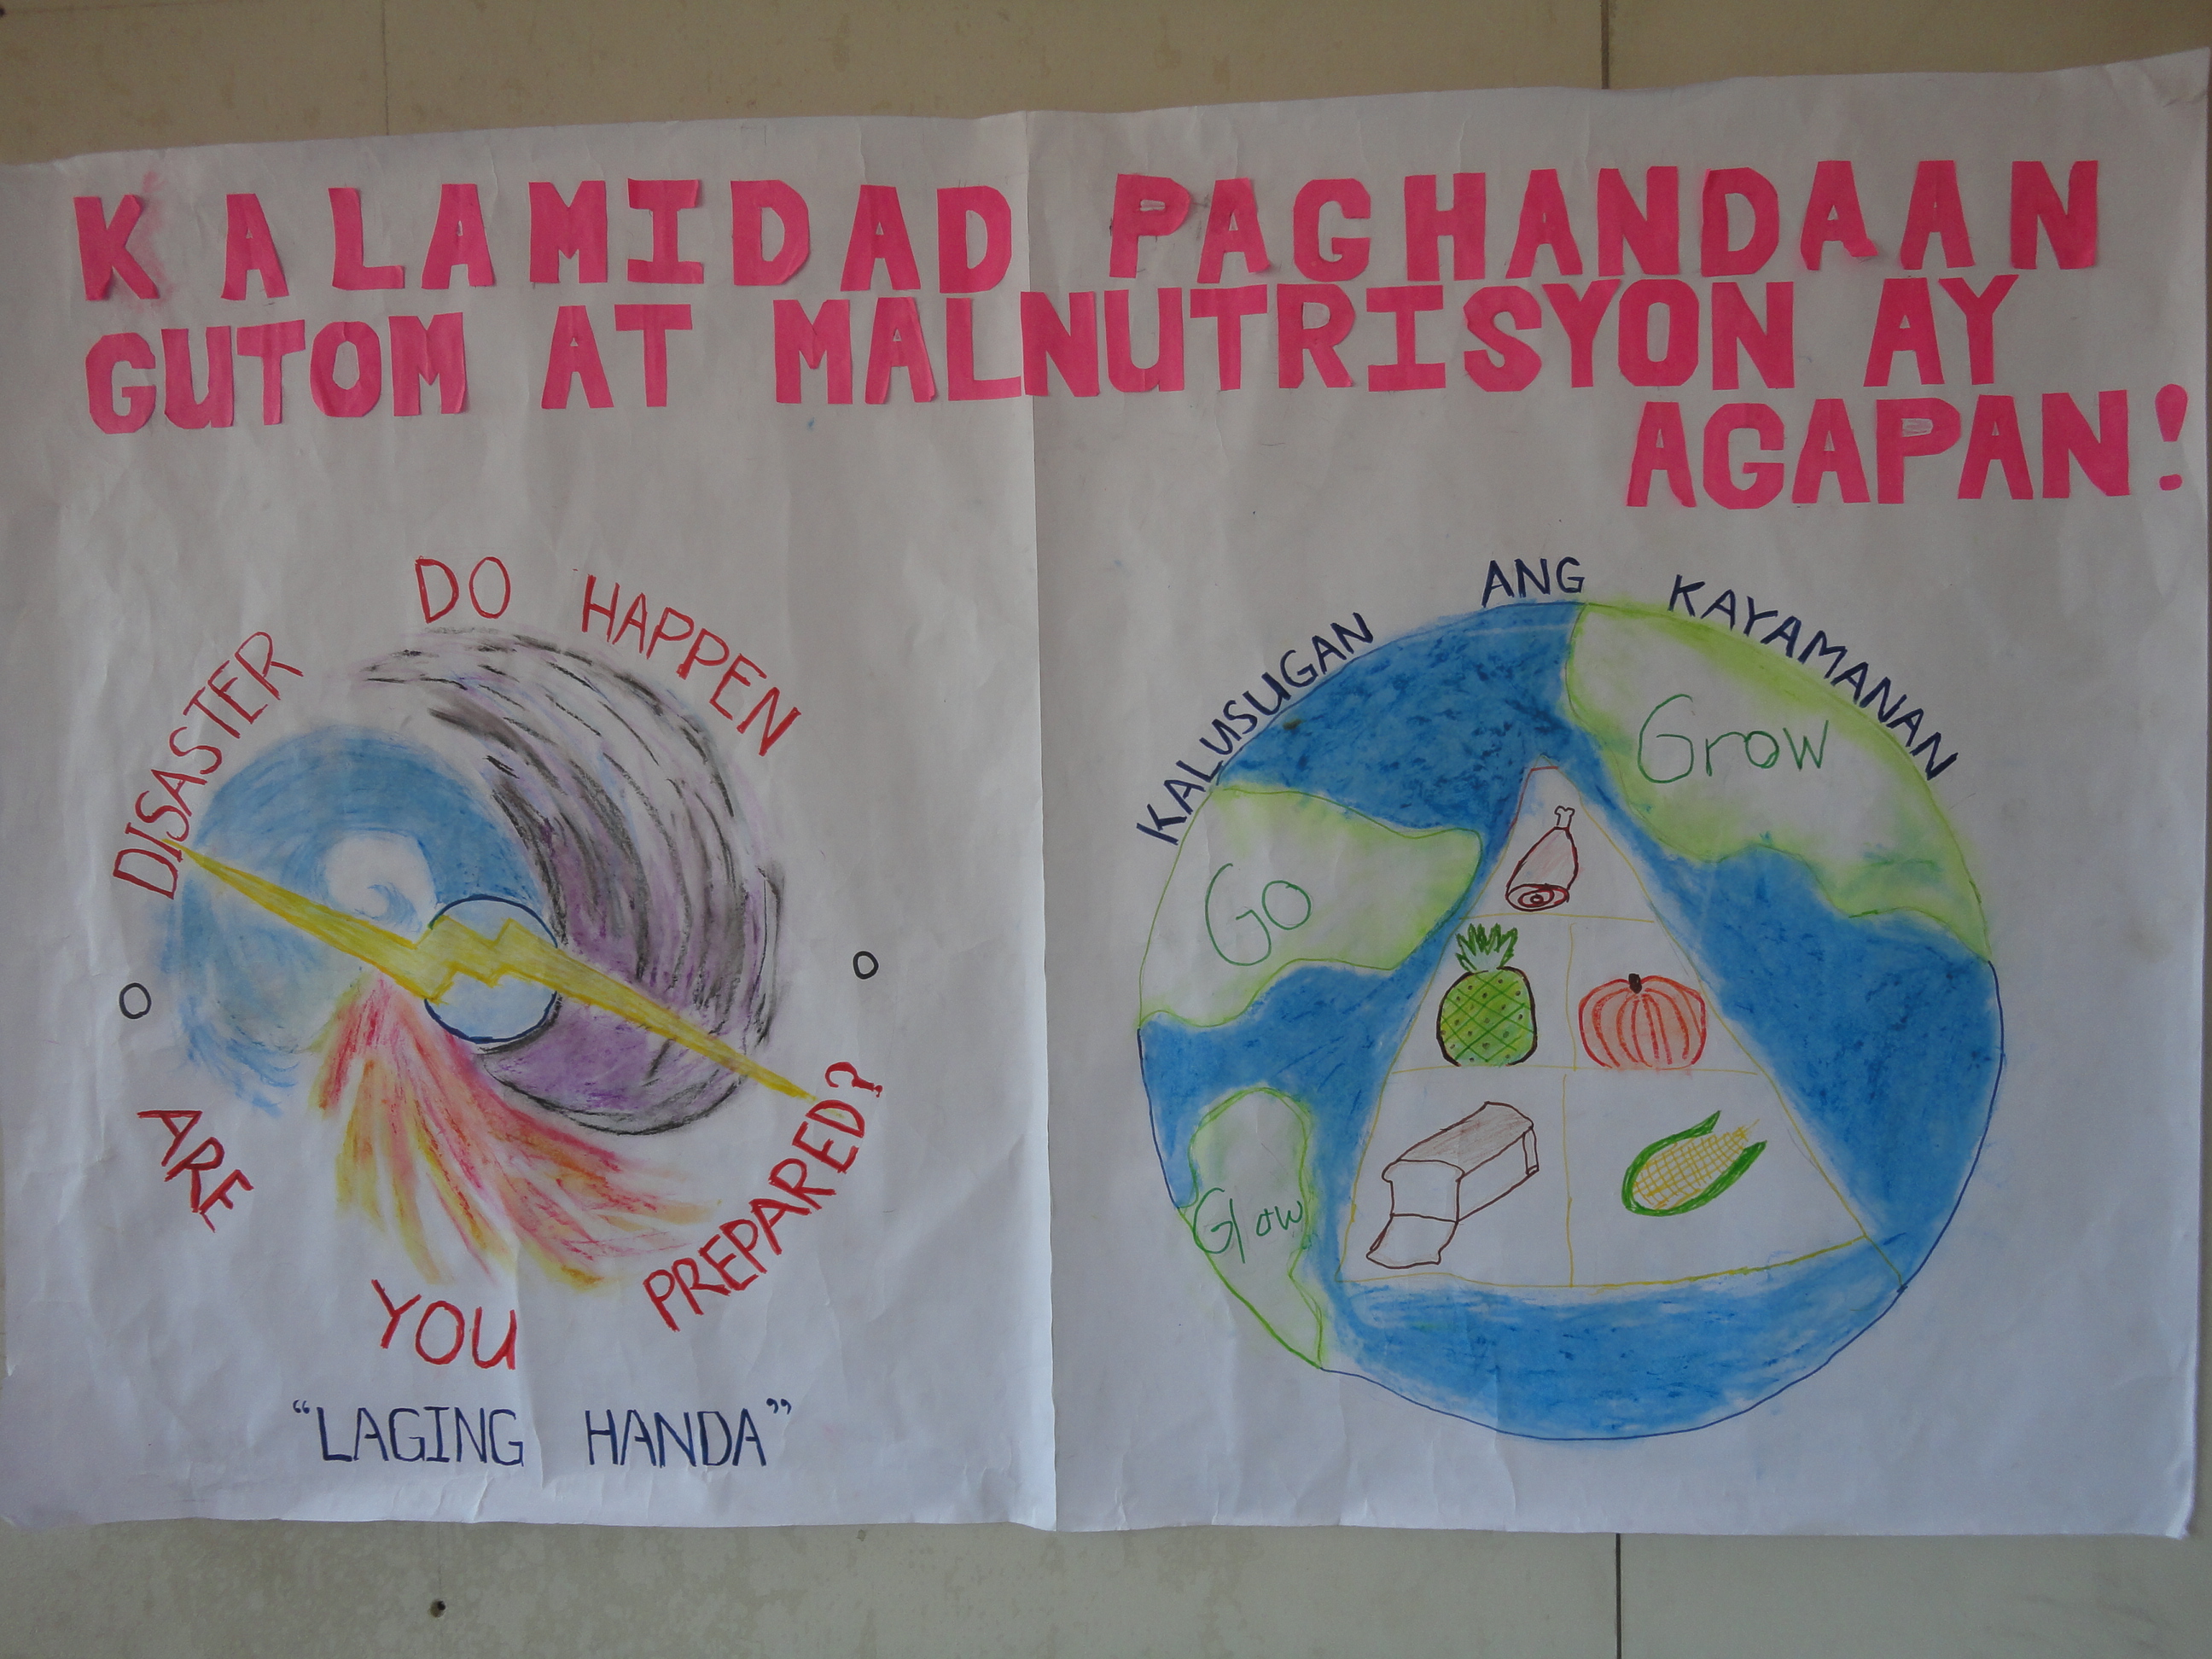 KALAMIDAD PAGHANDAAN
GUTOM AT MALNUTRISYON AY
AGAPAN!
DISASTER DO HAPPEN
ARE YOU PREPARED?
"LAGING HANDA"
KALUSUGAN ANG KAYAMANAN
Grow
Go
Glow